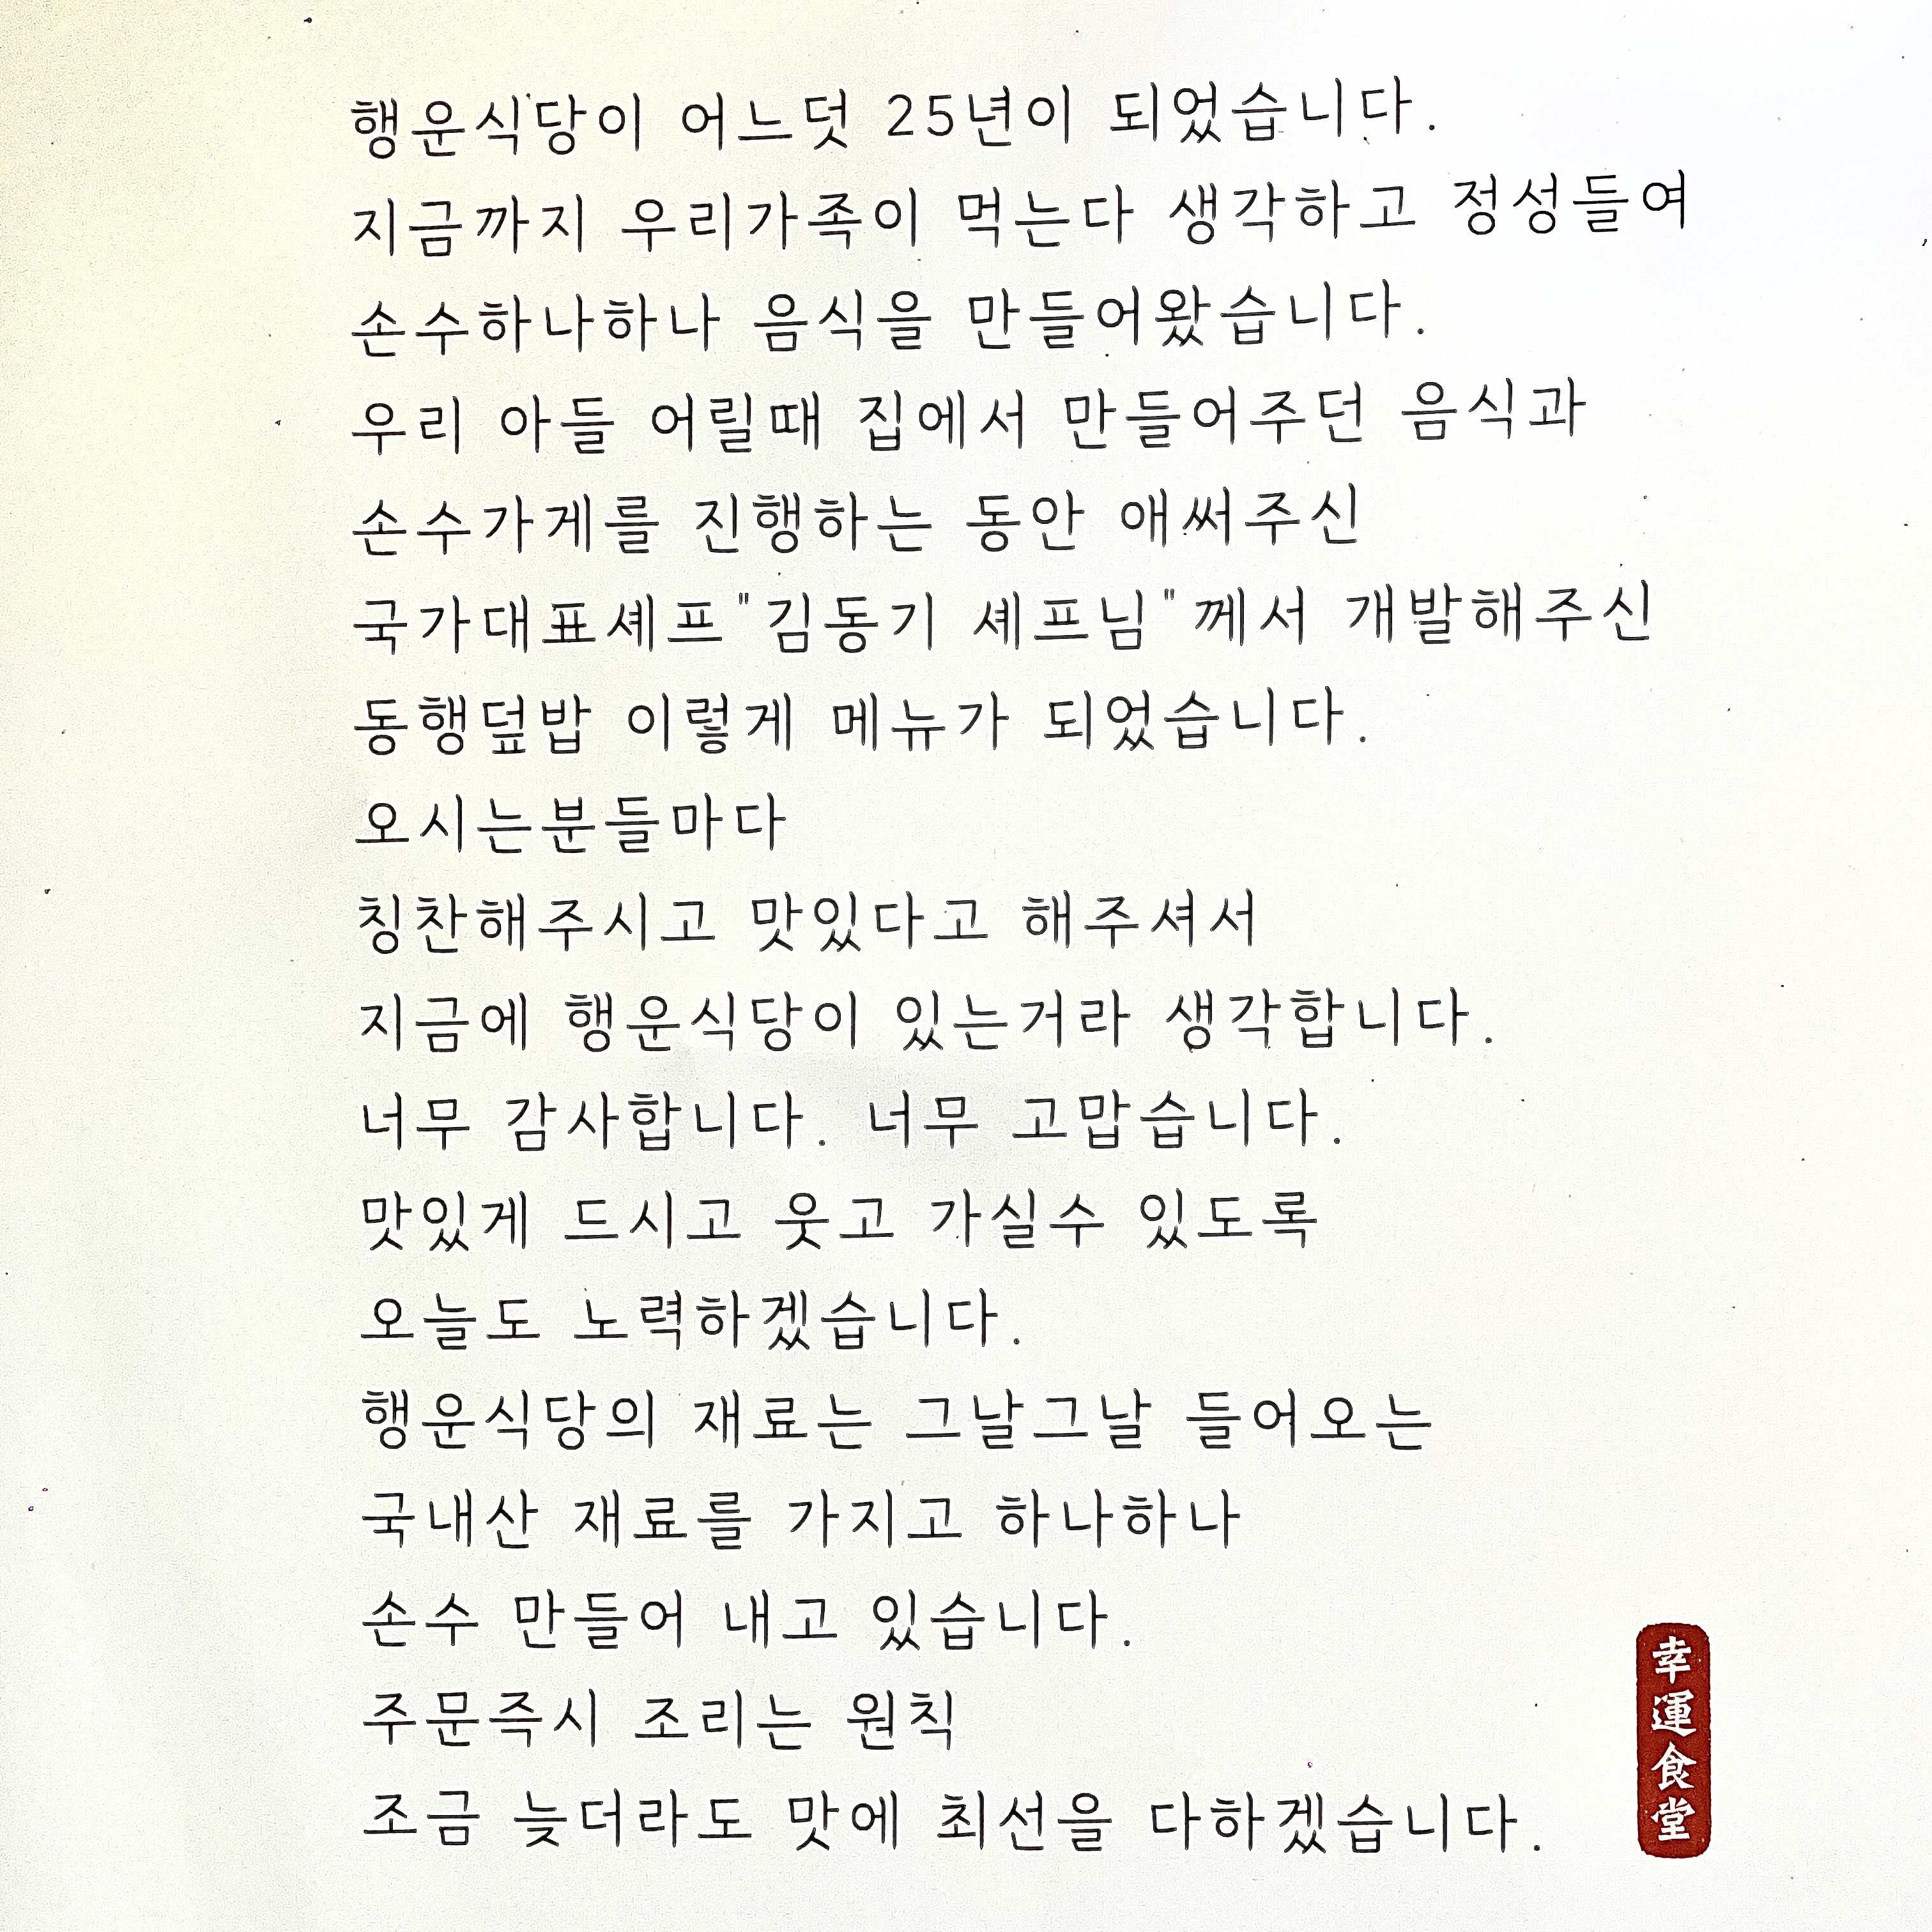 행운식당이 어느덧 25년이 되었습니다.
지금까지 우리가족이 먹는다 생각하고 정성들여
손수하나하나 음식을 만들어왔습니다.
우리 아들 어릴때 집에서 만들어주던 음식과
손수가게를 진행하는 동안 애써주신
국가대표셰프"김동기 셰프님"께서 개발해주신
동행덮밥 이렇게 메뉴가 되었습니다.
오시는분들마다
칭찬해주시고 맛있다고 해주셔서
지금에 행운식당이 있는거라 생각합니다.
너무 감사합니다. 너무 고맙습니다.
맛있게 드시고 웃고 가실수 있도록
오늘도 노력하겠습니다.
행운식당의 재료는 그날그날 들어오는
국내산 재료를 가지고 하나하나
손수 만들어 내고 있습니다.
주문즉시 조리는 원칙
조금 늦더라도 맛에 최선을 다하겠습니다.
幸運食堂